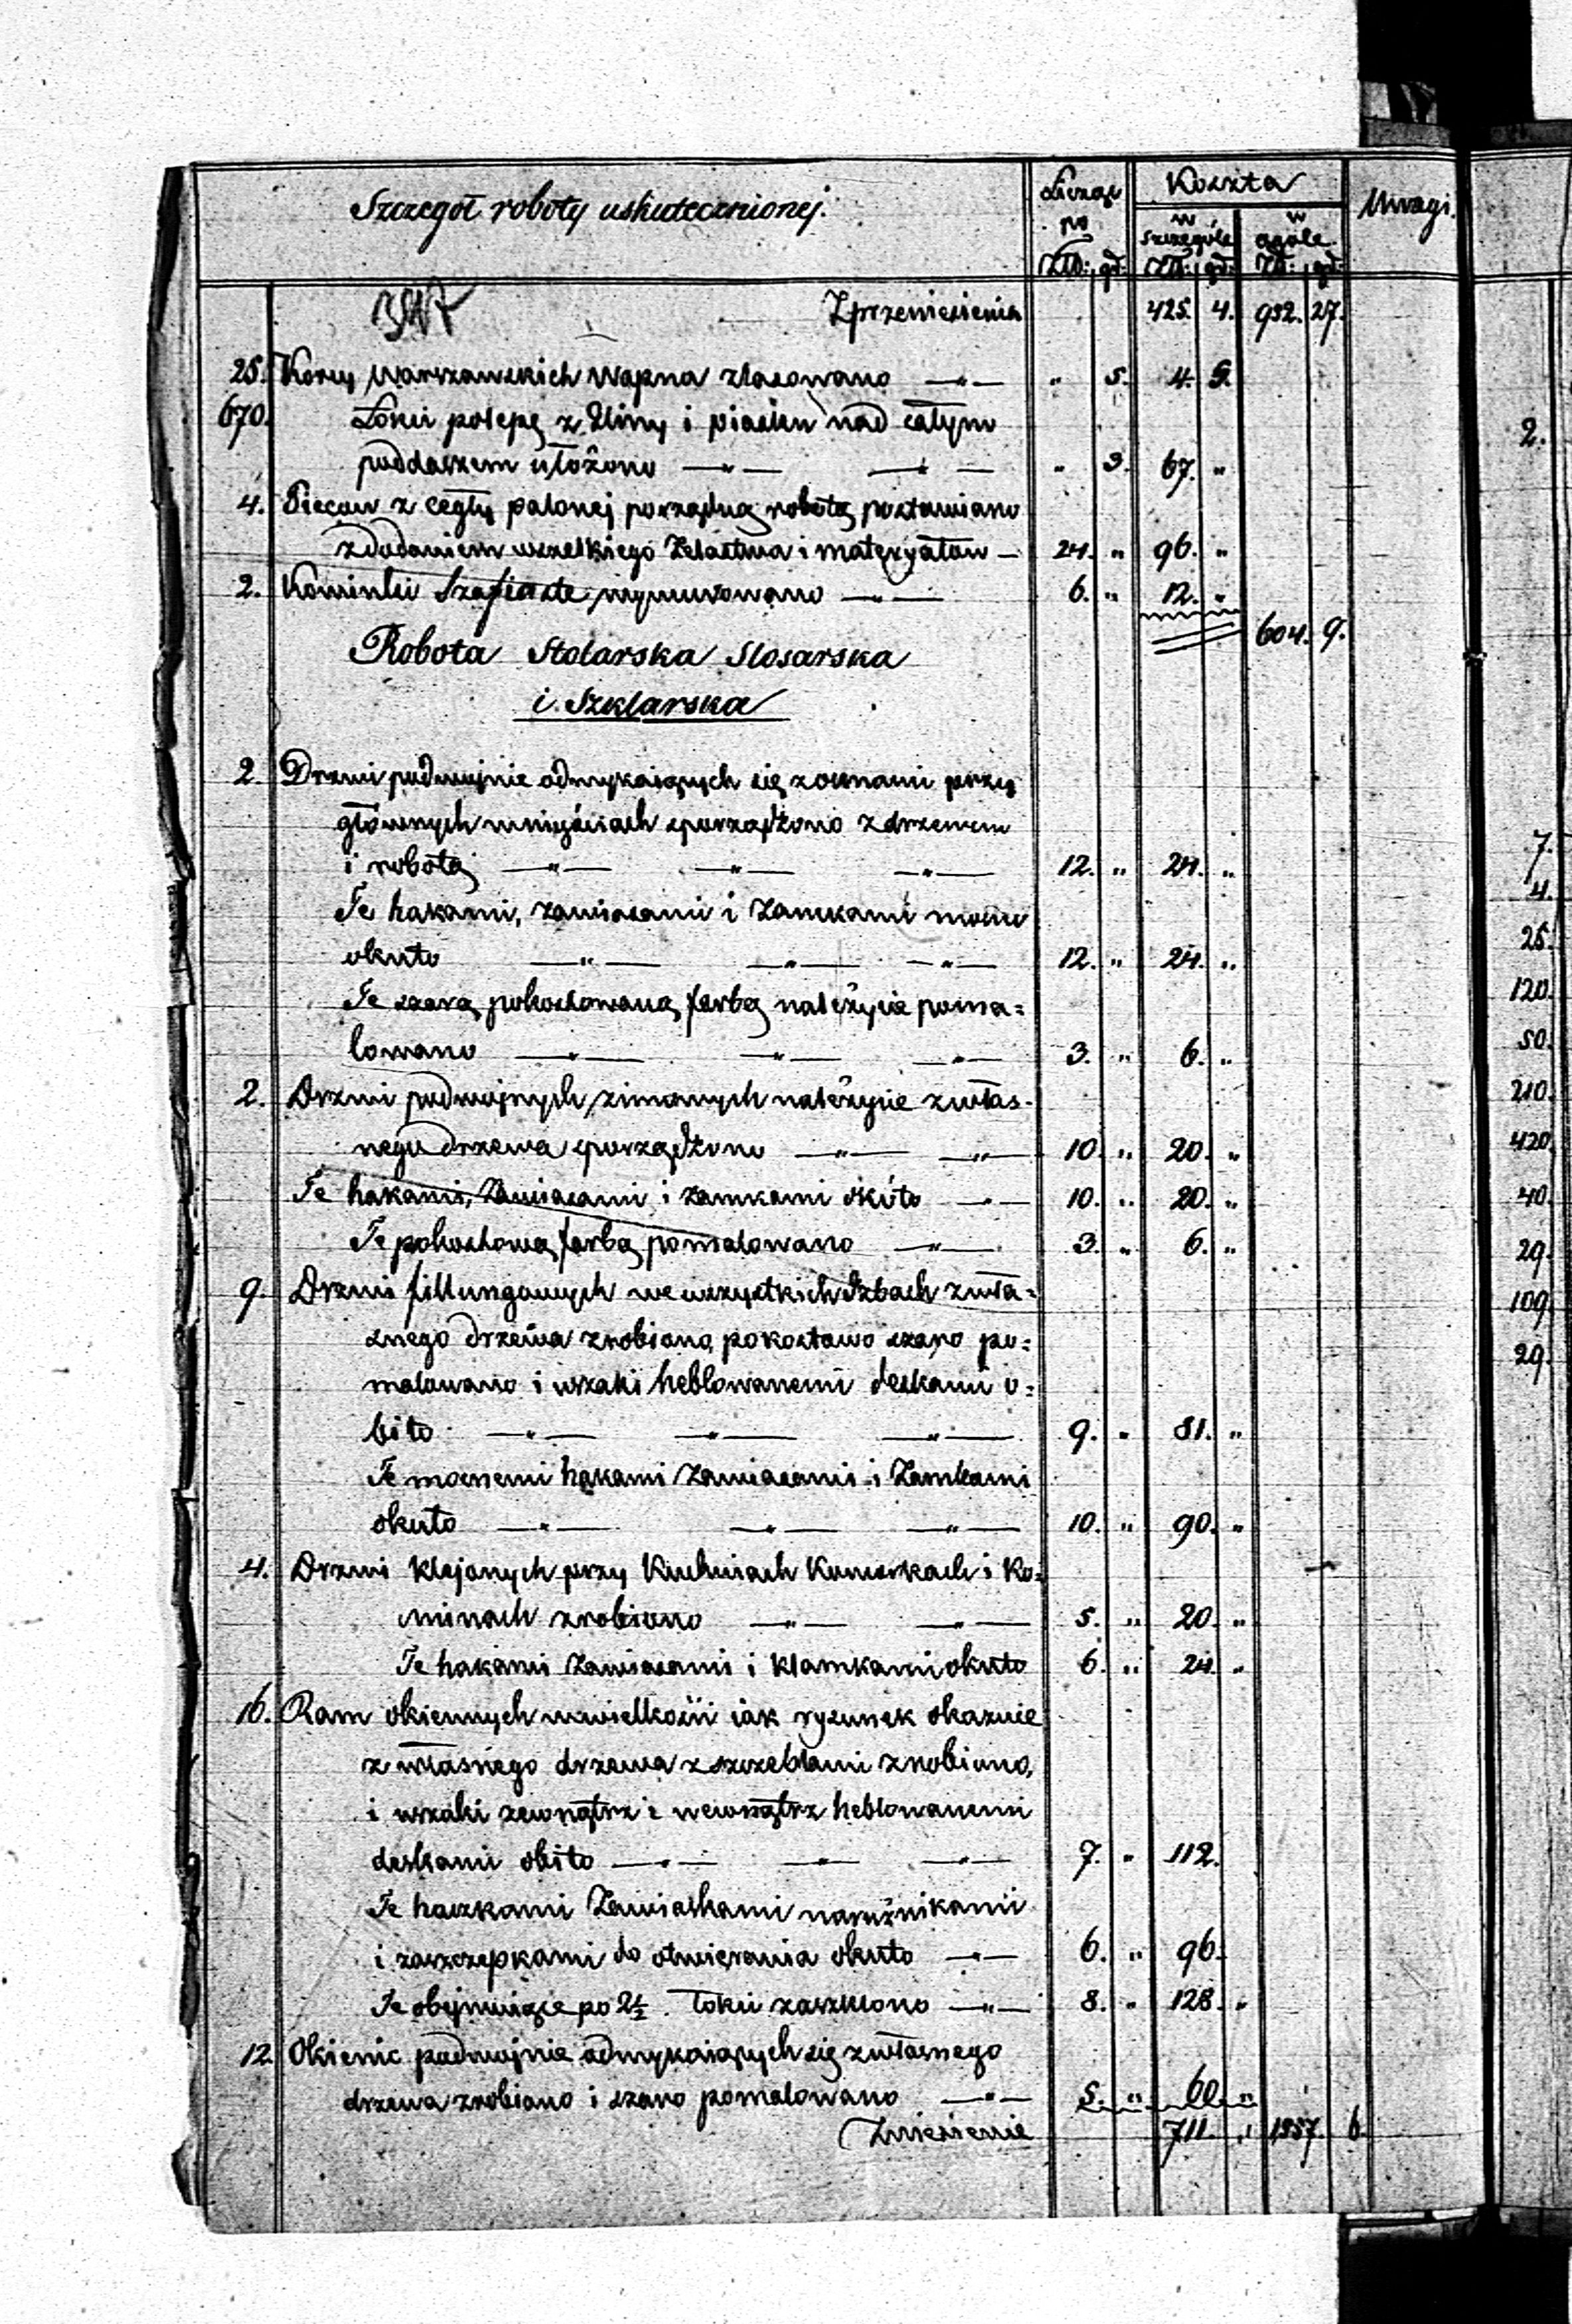 Szczegół roboty uskutecznionej.
Licząc po
Koszta
w szczególe
w ogóle
Uwagi.
Złt: gr: Złt: gr: Złt: gr:
Zprzeniesienia 425. 4. 952. 27.
25. Korcy Warszawskich Wapna zlasowano —"— " 5. 4. 5.
670. Łokci polepę z Gliny i piasku nad całym
poddaszem ułożono —"— —"— " 3. 67. "
4. Piecow z cegły palonej porządną robotą postawiono
zdodaniem wszelkiego Żelastwa i materyałow — 24. " 96. "
2. Kominki Szafiaste wymurowano —"— 6. " 12. "
604. 9.
Robota Stolarska Slosarska
i Szklarska
2. Drzwi podwojnie odmykaiących się zoknami przy
głównych wniyściach sporządzono zdrzewem
i robotą —"— —"— —"— 12. " 24. "
Te hakami, zawiasami i Zamkami mocno
okuto —"— —"— —"— 12. " 24. "
Te szarą pokostowaną farbą należycie poma=
lowano —"— —"— —"— 3. " 6. "
2. Drzwi podwojnych zimowych należycie zwłas-
nego drzewa sporządzono —"— —"— 10. " 20. "
Te hakami, Zawiasami i zamkami okuto —"— 10. " 20. "
Te pokostową farbą pomalowano —"— 3. " 6. "
9. Drzwi fillungowych we wszystkich Izbach zwła=
snego drzewa zrobiono pokostowo szaro po=
malowano i wszaki heblowanemi deskami o=
bito —"— —"— —"— 9. " 81. "
Te mocnemi hakami Zawiasami i Zamkami
okuto —"— —"— —"— 10. " 90. "
4. Drzwi klejonych przy Kuchniach Komorkach i Ko=
minach zrobiono —"— —"— 5. " 20. "
Te hakami Zawiasami i klamkami okuto 6. " 24. "
16. Ram okiennych wwielkości iak rysunek okazuie
z własnego drzewa zszczeblami zrobiono,
i wszaki zewnątrz i wewnątrz heblowanemi
deskami obito —"— —"— —"— 7. " 112.
Te haczkami Zawiaskami narużnikami
i zaszczepkami do otwierania okuto —"— 6. " 96.
Te obejmuiące po 2½. Łokci zaszklono —"— 8. " 128. "
12. Okienic podwojnie odmykaiących się zwłasnego
drzewa zrobiono i szaro pomalowano —"— 5. " 60. "
Zniesienie 711. " 1557. 6.
2.
7.
4.
25.
120.
50.
210.
420.
40.
29.
109.
29.